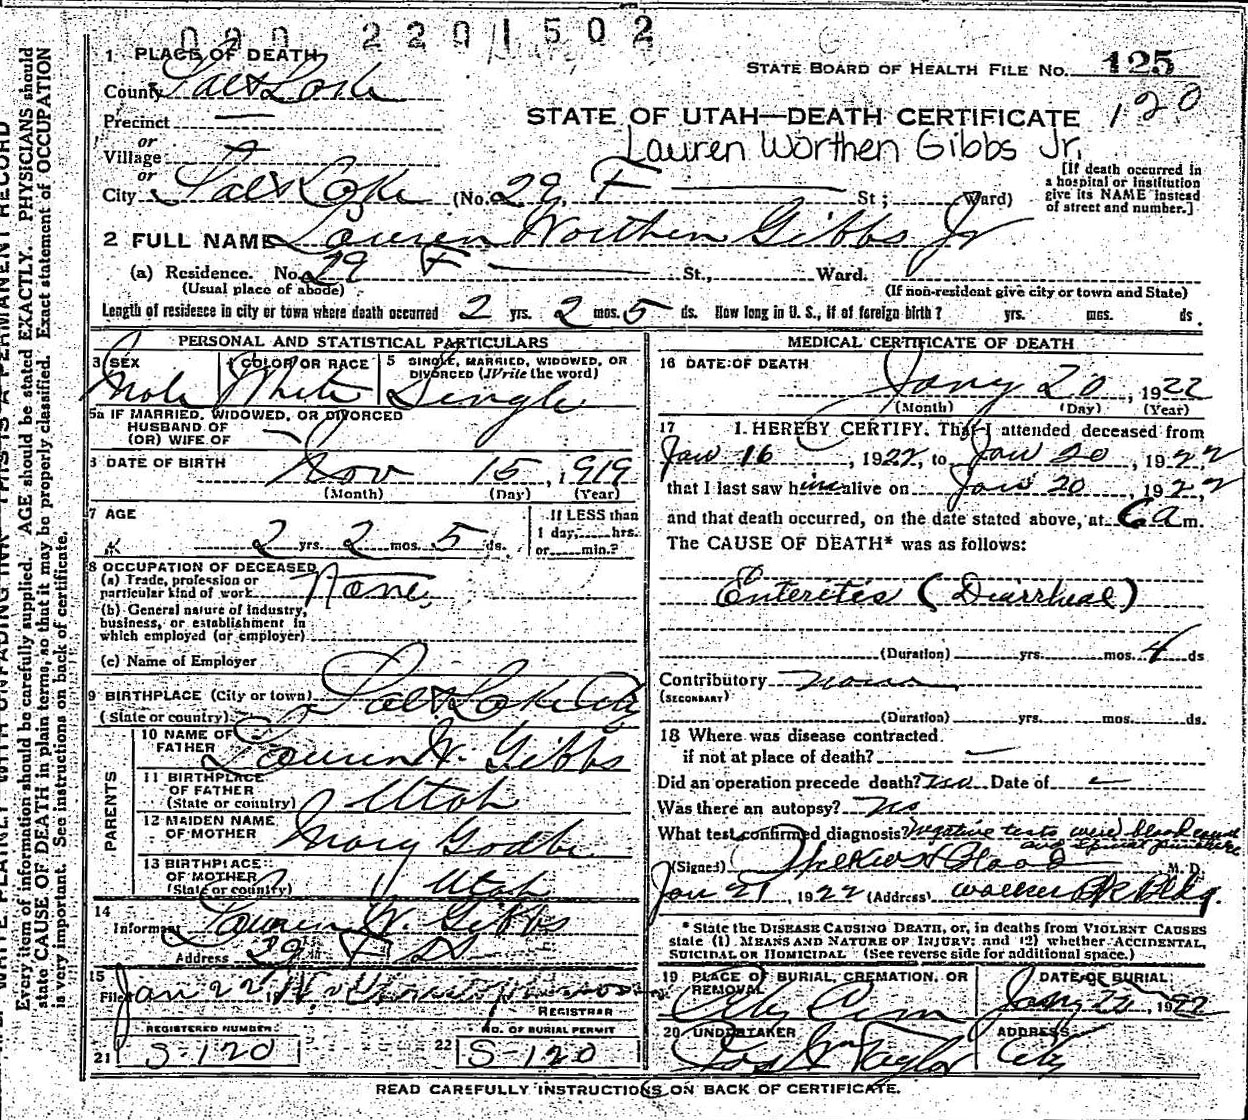 090 2201502
1 PLACE OF DEATH
County Salt Lake
STATE BOARD OF HEALTH FILE No. 125
120
Precinct
or
Village
or
STATE OF UTAH—DEATH CERTIFICATE
Lauren Worthen Gibbs Jr.
City Salt Lake (No. 29 F St; Ward)
[If death occurred in
a hospital or institution
give its NAME instead
of street and number.]
2 FULL NAME Lauren Worthen Gibbs Jr
(a) Residence. No. 29 F St., Ward.
(Usual place of abode) (If non-resident give city or town and State)
Length of residence in city or town where death occurred 2 yrs. 2 mos. 5 ds. How long in U. S., if of foreign birth? yrs. mos. ds.
PERSONAL AND STATISTICAL PARTICULARS
3 SEX 4 COLOR OR RACE 5 SINGLE, MARRIED, WIDOWED, OR
DIVORCED (Write the word)
Male White Single
5a IF MARRIED, WIDOWED, OR DIVORCED
HUSBAND OF
(OR) WIFE OF
6 DATE OF BIRTH Nov 15, 1919
(Month) (Day) (Year)
7 AGE
2 yrs. 2 mos. 5 ds.
If LESS than
1 day, hrs.
or min.?
8 OCCUPATION OF DECEASED
(a) Trade, profession or
particular kind of work None
(b) General nature of industry,
business, or establishment in
which employed (or employer)
(c) Name of Employer
9 BIRTHPLACE (City or town) Salt Lake City
(State or country)
PARENTS
10 NAME OF
FATHER Lauren W. Gibbs
11 BIRTHPLACE
OF FATHER
(State or country) Utah
12 MAIDEN NAME
OF MOTHER Mary Godbe
13 BIRTHPLACE
OF MOTHER
(State or country) Utah
14
Informant Lauren W. Gibbs
Address 29 F St
15
Filed Jan 22
REGISTRAR
REGISTERED NUMBER
21 S-120
NO. OF BURIAL PERMIT
22 S-120
MEDICAL CERTIFICATE OF DEATH
16 DATE OF DEATH
Jany 20, 1922
(Month) (Day) (Year)
17 I HEREBY CERTIFY, That I attended deceased from
Jan 16, 1922, to Jan 20, 1922
that I last saw him alive on Jan 20, 1922
and that death occurred, on the date stated above, at 6 a m.
The CAUSE OF DEATH* was as follows:
Enteretis (Diarrheal)
(Duration) yrs. mos. 4 ds
Contributory none
(SECONDARY)
(Duration) yrs. mos. ds.
18 Where was disease contracted
if not at place of death?
Did an operation precede death? no Date of
Was there an autopsy? No
What test confirmed diagnosis Negative tests were blood count
and spinal puncture
(Signed) M. D.
Jan 21, 1922 (Address) Walker Bk Bldg.
* State the DISEASE CAUSING DEATH, or, in deaths from VIOLENT CAUSES
state (1) MEANS AND NATURE OF INJURY; and (2) whether ACCIDENTAL,
SUICIDAL OR HOMICIDAL (See reverse side for additional space.)
19 PLACE OF BURIAL, CREMATION, OR
REMOVAL
City Cem
DATE OF BURIAL
Jany 22, 1922
20 UNDERTAKER
Jos Wm Taylor
ADDRESS
City
READ CAREFULLY INSTRUCTIONS ON BACK OF CERTIFICATE.
Every item of information should be carefully supplied. AGE should be stated EXACTLY. PHYSICIANS should
state CAUSE OF DEATH in plain terms, so that it may be properly classified. Exact statement of OCCUPATION
is very important. See instructions on back of certificate.